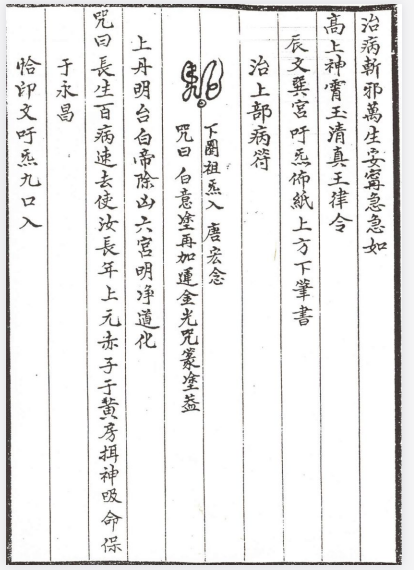 治病斬邪萬生安寗急急如
高上神霄玉清真王律令
辰文巽宮吁炁佈紙上方下筆書
治上部病符
下圈祖炁入 唐宏念
咒曰白意塗再加運金光咒叢塗蓋
上丹明台白帝除凶六宮明净道化
咒曰長生百病速去使汝長年上元赤子于黄房揖神吸命保
于永昌
恰印文吁炁九口入